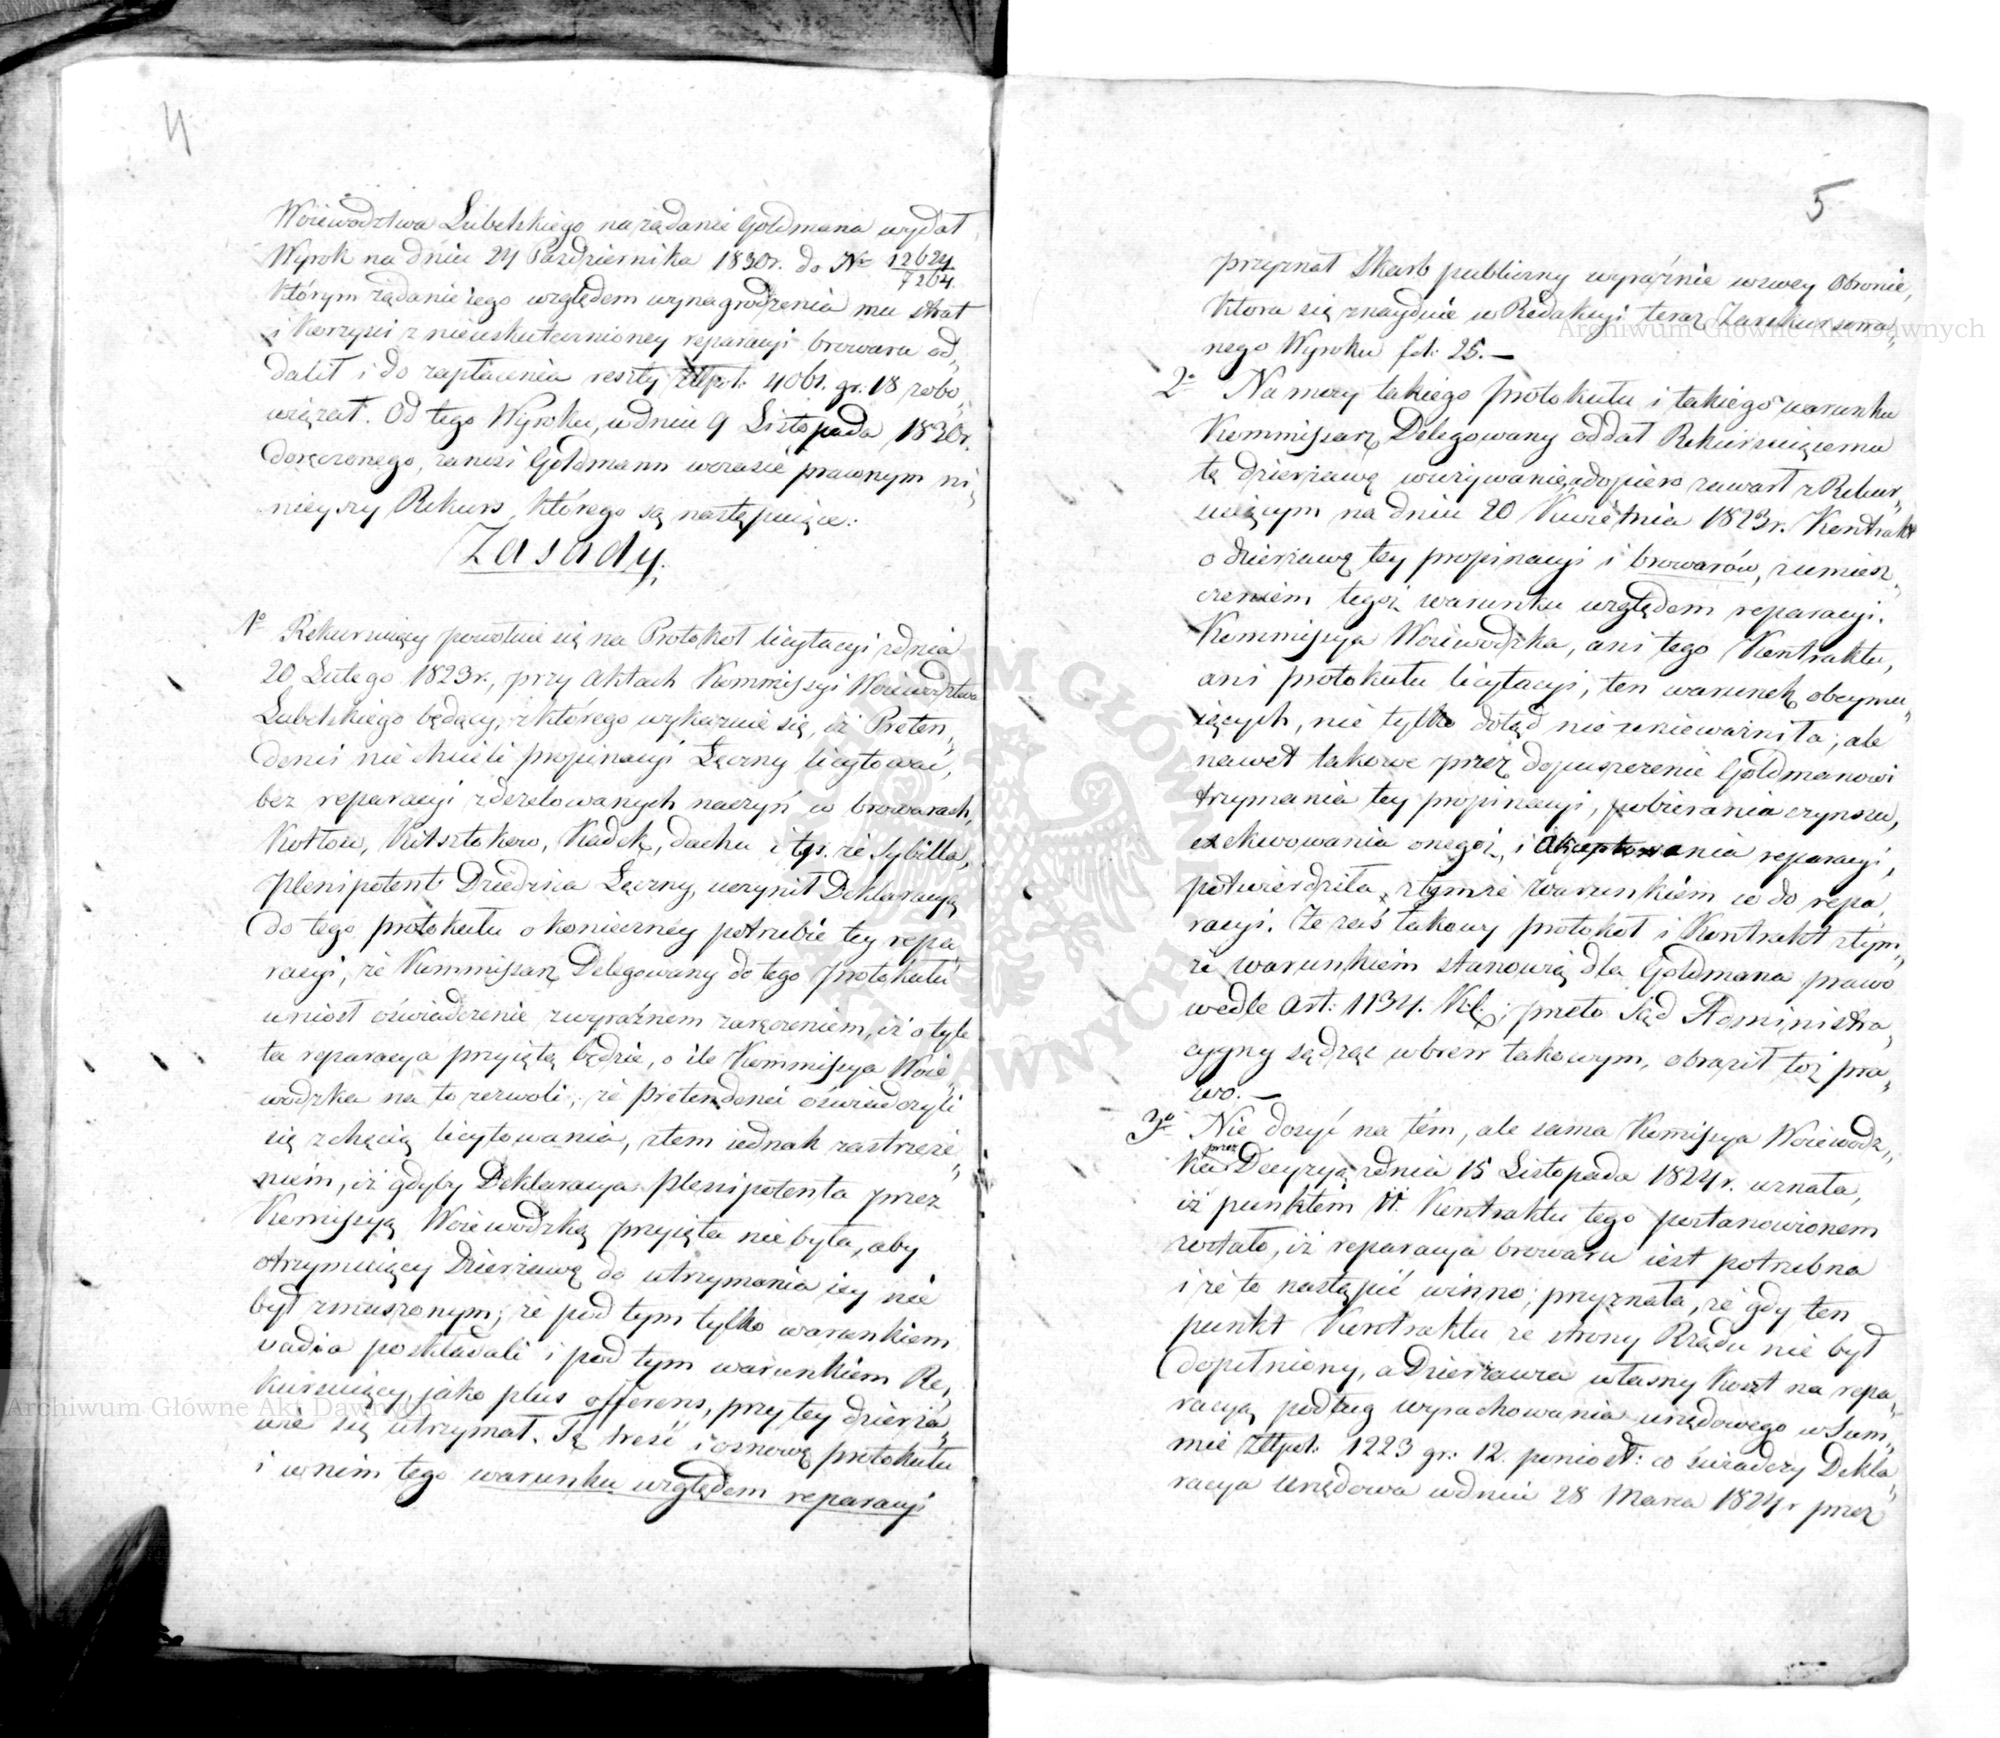 4
Woiewodztwa Lubelskiego na rządanie Goldmana wydał
Wyrok na dniu 24 Pazdziernika 1830r. do Nr 12624/7264.
którym rządanie iego względem wynagrodzenia mu strat
i korzyści z nieuskutecznioney reparacyi browaru od„
dalił i do zapłacenia reszty Złłpol: 4061. gr: 18 zobo„
wiązał. Od tego Wyroku, w dniu 9 Listopada 1830r.
doręczonego, zaniosł Goldmann w czasie prawnym ni„
nieyszy Rekurs, którego są następuiące:
Zasady.
1o Rekursuiący powołuie się na Protokoł licytacyi z dnia
20 Lutego 1823r., przy aktach Kommissyi Woiewodztwa
Lubelskiego będący, z którego wykazuie się, iż Preten„
denci nie chcieli propinacyi Łęczny licytować,
bez reparacyi zdezelowanych naczyń w browarach,
Kotłow, Kilsztokow, Kadek, dachu i t.p. że Sybilla,
plenipotent Dziedzica Łęczny, uczynił Deklaracyą
do tego protokułu o konieczney potrzebie tey repa„
racyi, że Kommissarz Delegowany do tego protokułu
wniosł oświadczenie z wyraźnem zaręczeniem, iż o tyle
ta reparacya przyięta będzie, o ile Kommissya Woie„
wodzka na to zezwoli; że pretendenci oświadczyli
się z chęcią licytowania, z tem iednak zastrzeże„
niem, iż gdyby Deklaracya plenipotenta przez
Kommissyą Woiewodzką przyięta nie była, aby
otrzymuiący Dzierżawę do utrzymania iey nie
był zmuszonym; że pod tym tylko warunkiem
vadia poskładali i pod tym warunkiem Re„
kursuiący, jako plus offerens, przy tey dzierża„
wie się utrzymał. Tę treść i osnowę protokułu
i w nim tego warunku względem reparacyi
5
przyznał Skarb publiczny wyraźnie w swey obronie,
ktora się znayduie w Redakcyi teraz Zarekursowa„
nego Wyroku fol: 25.—
2o Na mocy takiego protokułu i takiego warunku
Kommissarz Delegowany oddał Rekursuiącemu
tę dzierżawę w używanie, a dopiero zawarł z Rekur„
suiącym na dniu 20 Kwietnia 1823r. Kontrakt
o dzierżawę tey propinacyi i browarów, z umiesz„
czeniem tegoż warunku względem reparacyi.
Kommissya Woiewodzka, ani tego Kontraktu,
ani protokułu licytacyi, ten warunek obeymu„
iących, nie tylko dotąd nie unieważniła; ale
nawet takowe przez dopuszczenie Goldmanowi
trzymania tey propinacyi, pobierania czynszu,
exekwowania onegoż, i akceptowania reparacyi,
potwierdziła z tymże warunkiem co do repa„
racyi. Że zaś takowy protokoł i Kontrakt z tym„
że warunkiem stanowią dla Goldmana prawo
wedle art: 1134. K.C.; przeto Sąd Administra„
cyyny sądząc wbrew takowym, obraził toż pra„
wo.—
3o Nie dosyć na tém, ale sama Kommissya Woiewodz„
ka przez Decyzyą z dnia 15 Listopada 1824r. uznała,
iż punktem 11. Kontraktu tego postanowionem
zostało, iż reparacya browaru iest potrzebna
i że to nastąpić winno; przyznała, że gdy ten
punkt Kontraktu ze strony Rządu nie był
dopełniony, a Dzierżawca własny koszt na repa„
racyą podług wyrachowania urzędowego w Sum„
mie Złłpol: 1223 gr: 12. poniosł: co świadczy Dekla„
racya urzędowa w dniu 28 Marca 1824r przez
Archiwum Główne Akt Dawnych
Archiwum Główne Akt Dawnych
ARCHIWUM GŁÓWNE AKT DAWNYCH